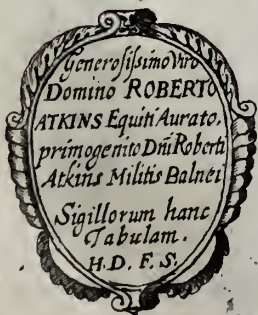 Generosissimo Viro
Domino ROBERTO
ATKINS Equiti Aurato,
primogenito Dñi Roberti
Atkins Militis Balnei
Sigillorum hanc
Tabulam.
H. D. F. S.